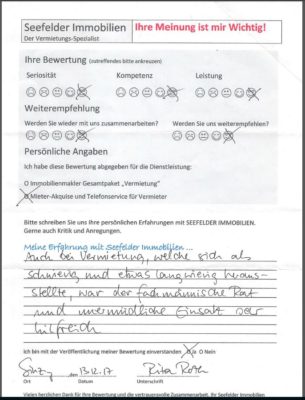 Seefelder Immobilien
Der Vermietungs-Spezialist
Ihre Meinung ist mir Wichtig!
Ihre Bewertung (zutreffendes bitte ankreuzen)
Seriosität Kompetenz Leistung
Weiterempfehlung
Würden Sie wieder mit uns zusammenarbeiten? Würden Sie uns weiterempfehlen?
Persönliche Angaben
Ich habe diese Bewertung abgegeben für die Dienstleistung:
O Immobilienmakler Gesamtpaket „Vermietung"
Mieter-Akquise und Telefonservice für Vermieter
Bitte schreiben Sie uns Ihre persönlichen Erfahrungen mit SEEFELDER IMMOBILIEN.
Gerne auch Kritik und Anregungen.
Meine Erfahrung mit Seefelder Immobilien...
Auch bei Vermietung, welche sich als
schwierig und etwas langwierig heraus-
stellte, war der fachmännische Rat
und unermüdliche Einsatz sehr
hilfreich
Ich bin mit der Veröffentlichung meiner Bewertung einverstanden. Ja O Nein
13.12.17 Rita Roth
Ort Datum Unterschrift
Vielen herzlichen Dank für Ihre Bewertung und die vertrauensvolle Zusammenarbeit. Ihr Seefelder Immobilien